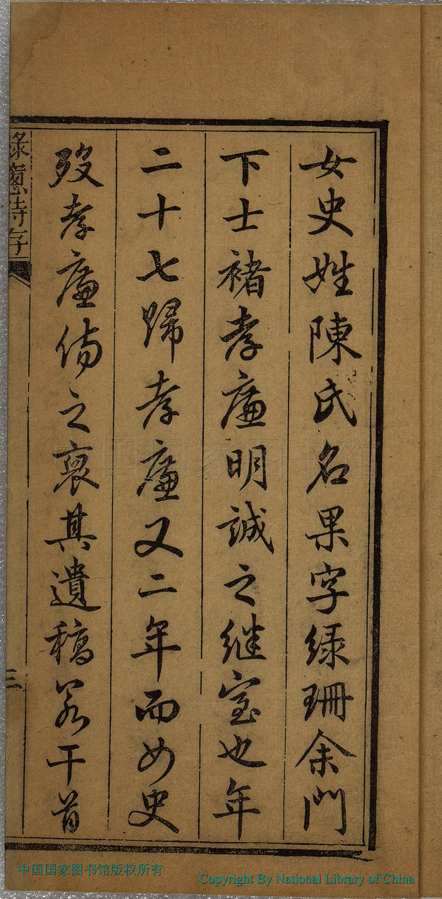 女史姓陳氏名果字绿珊余門
下士褚孝廉明誠之继室也年
二十七歸孝廉又二年而女史
殁孝廉傷之裒其遺稿若干首
三
中国国家图书馆版权所有
Copyright By National Library of China